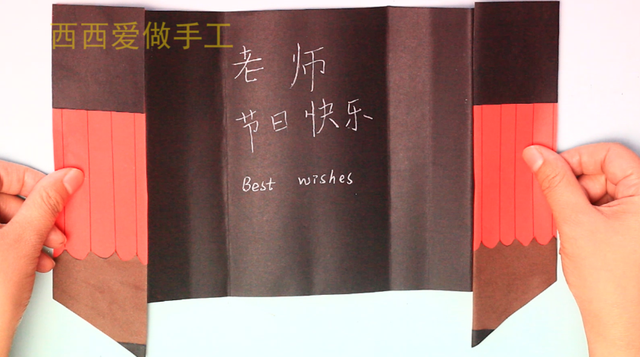 西西爱做手工
老师
节日快乐
Best wishes